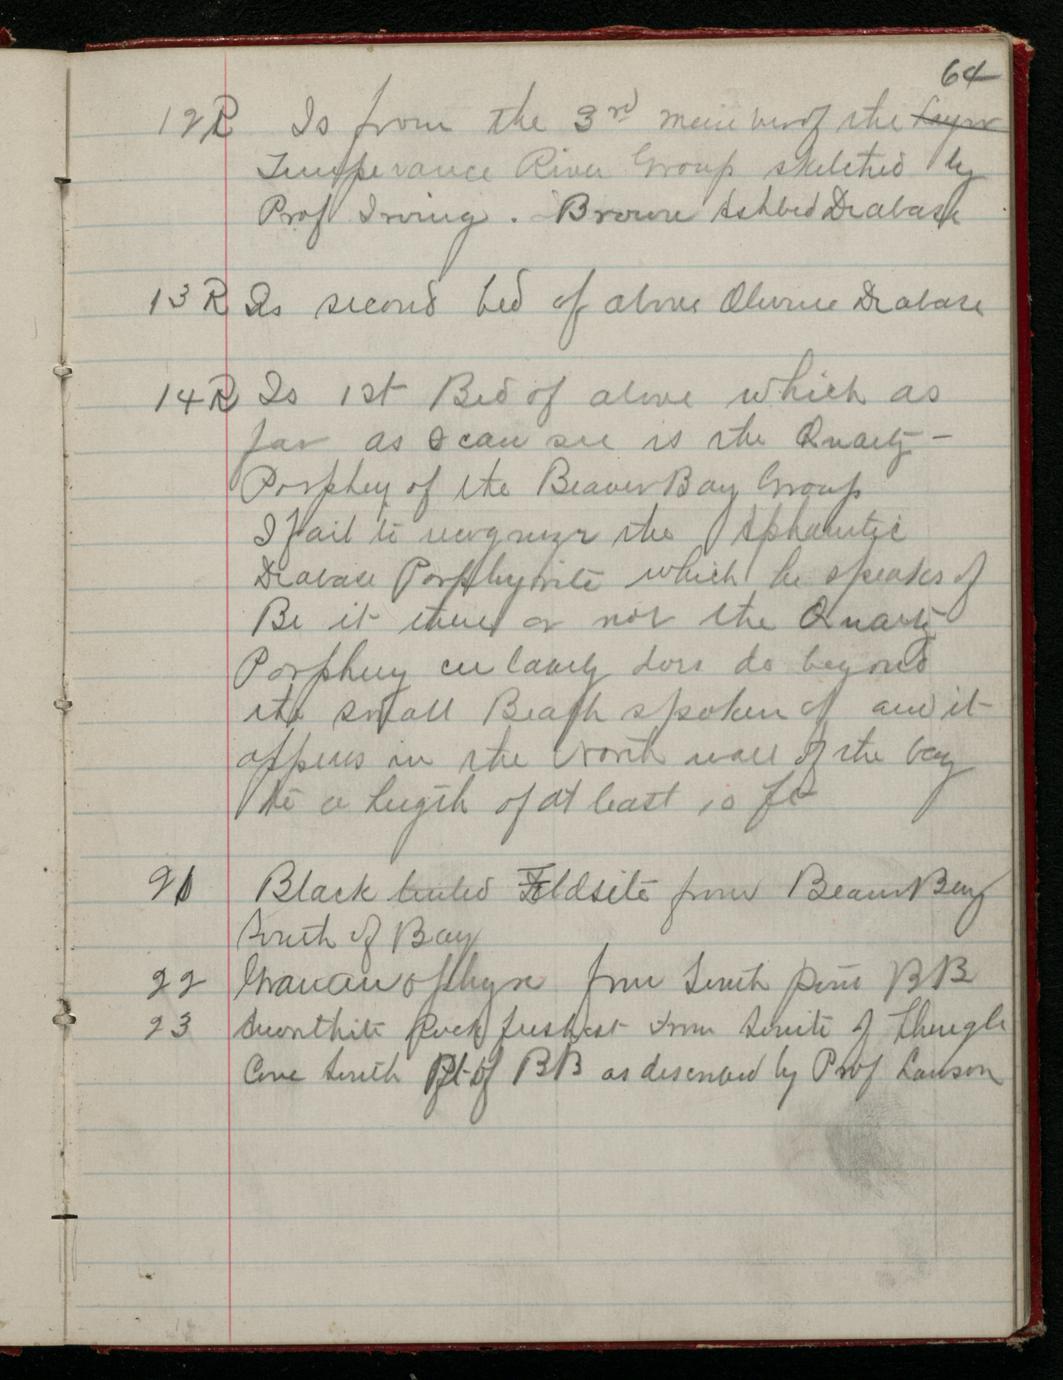 64
12R Is from the 3rd member of the
Temperance River Group sketched by
Prof Irving. Brown Ashbed Diabase
13R Is second bed of above Olivine Diabase
14R Is 1st Bed of above which as
far as I can see is the Quartz-
Porphry of the Beaver Bay Group
I fail to recognize the Aphanitic
Diabase Porphyrite which he speaks of
Be it there or not the Quartz
Porphery certainly does do beyond
the small Beach spoken of and it
appears in the North wall of the bay
to a length of at least 10 ft
21 Black Feldsite from Beaver Bay
South of Bay
22 from South point BB
23 Anorthite Rock freshest from South of
Cove South Pt of BB as described by Prof Lawson